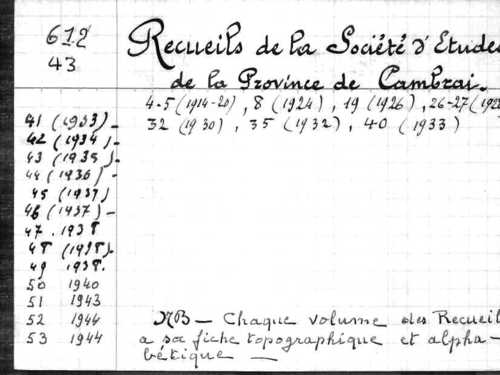 612
43
Recueils de la Société d'Etudes
de la Province de Cambrai.
4-5 (1914-20), 8 (1924), 19 (1926), 26-27 (192
32 (1930), 35 (1932), 40 (1933)
41 (1933) -
42 (1934) -
43 (1935) -
44 (1936) -
45 (1937)
46 (1937) -
47 . 1938
48 (1938).
49 1938.
50 1940
51 1943
52 1944
53 1944
NB - Chaque volume des Recueil
a sa fiche topographique et alpha-
bétique -